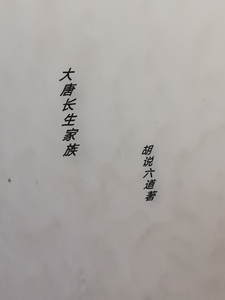 大唐长生家族
胡说六道著